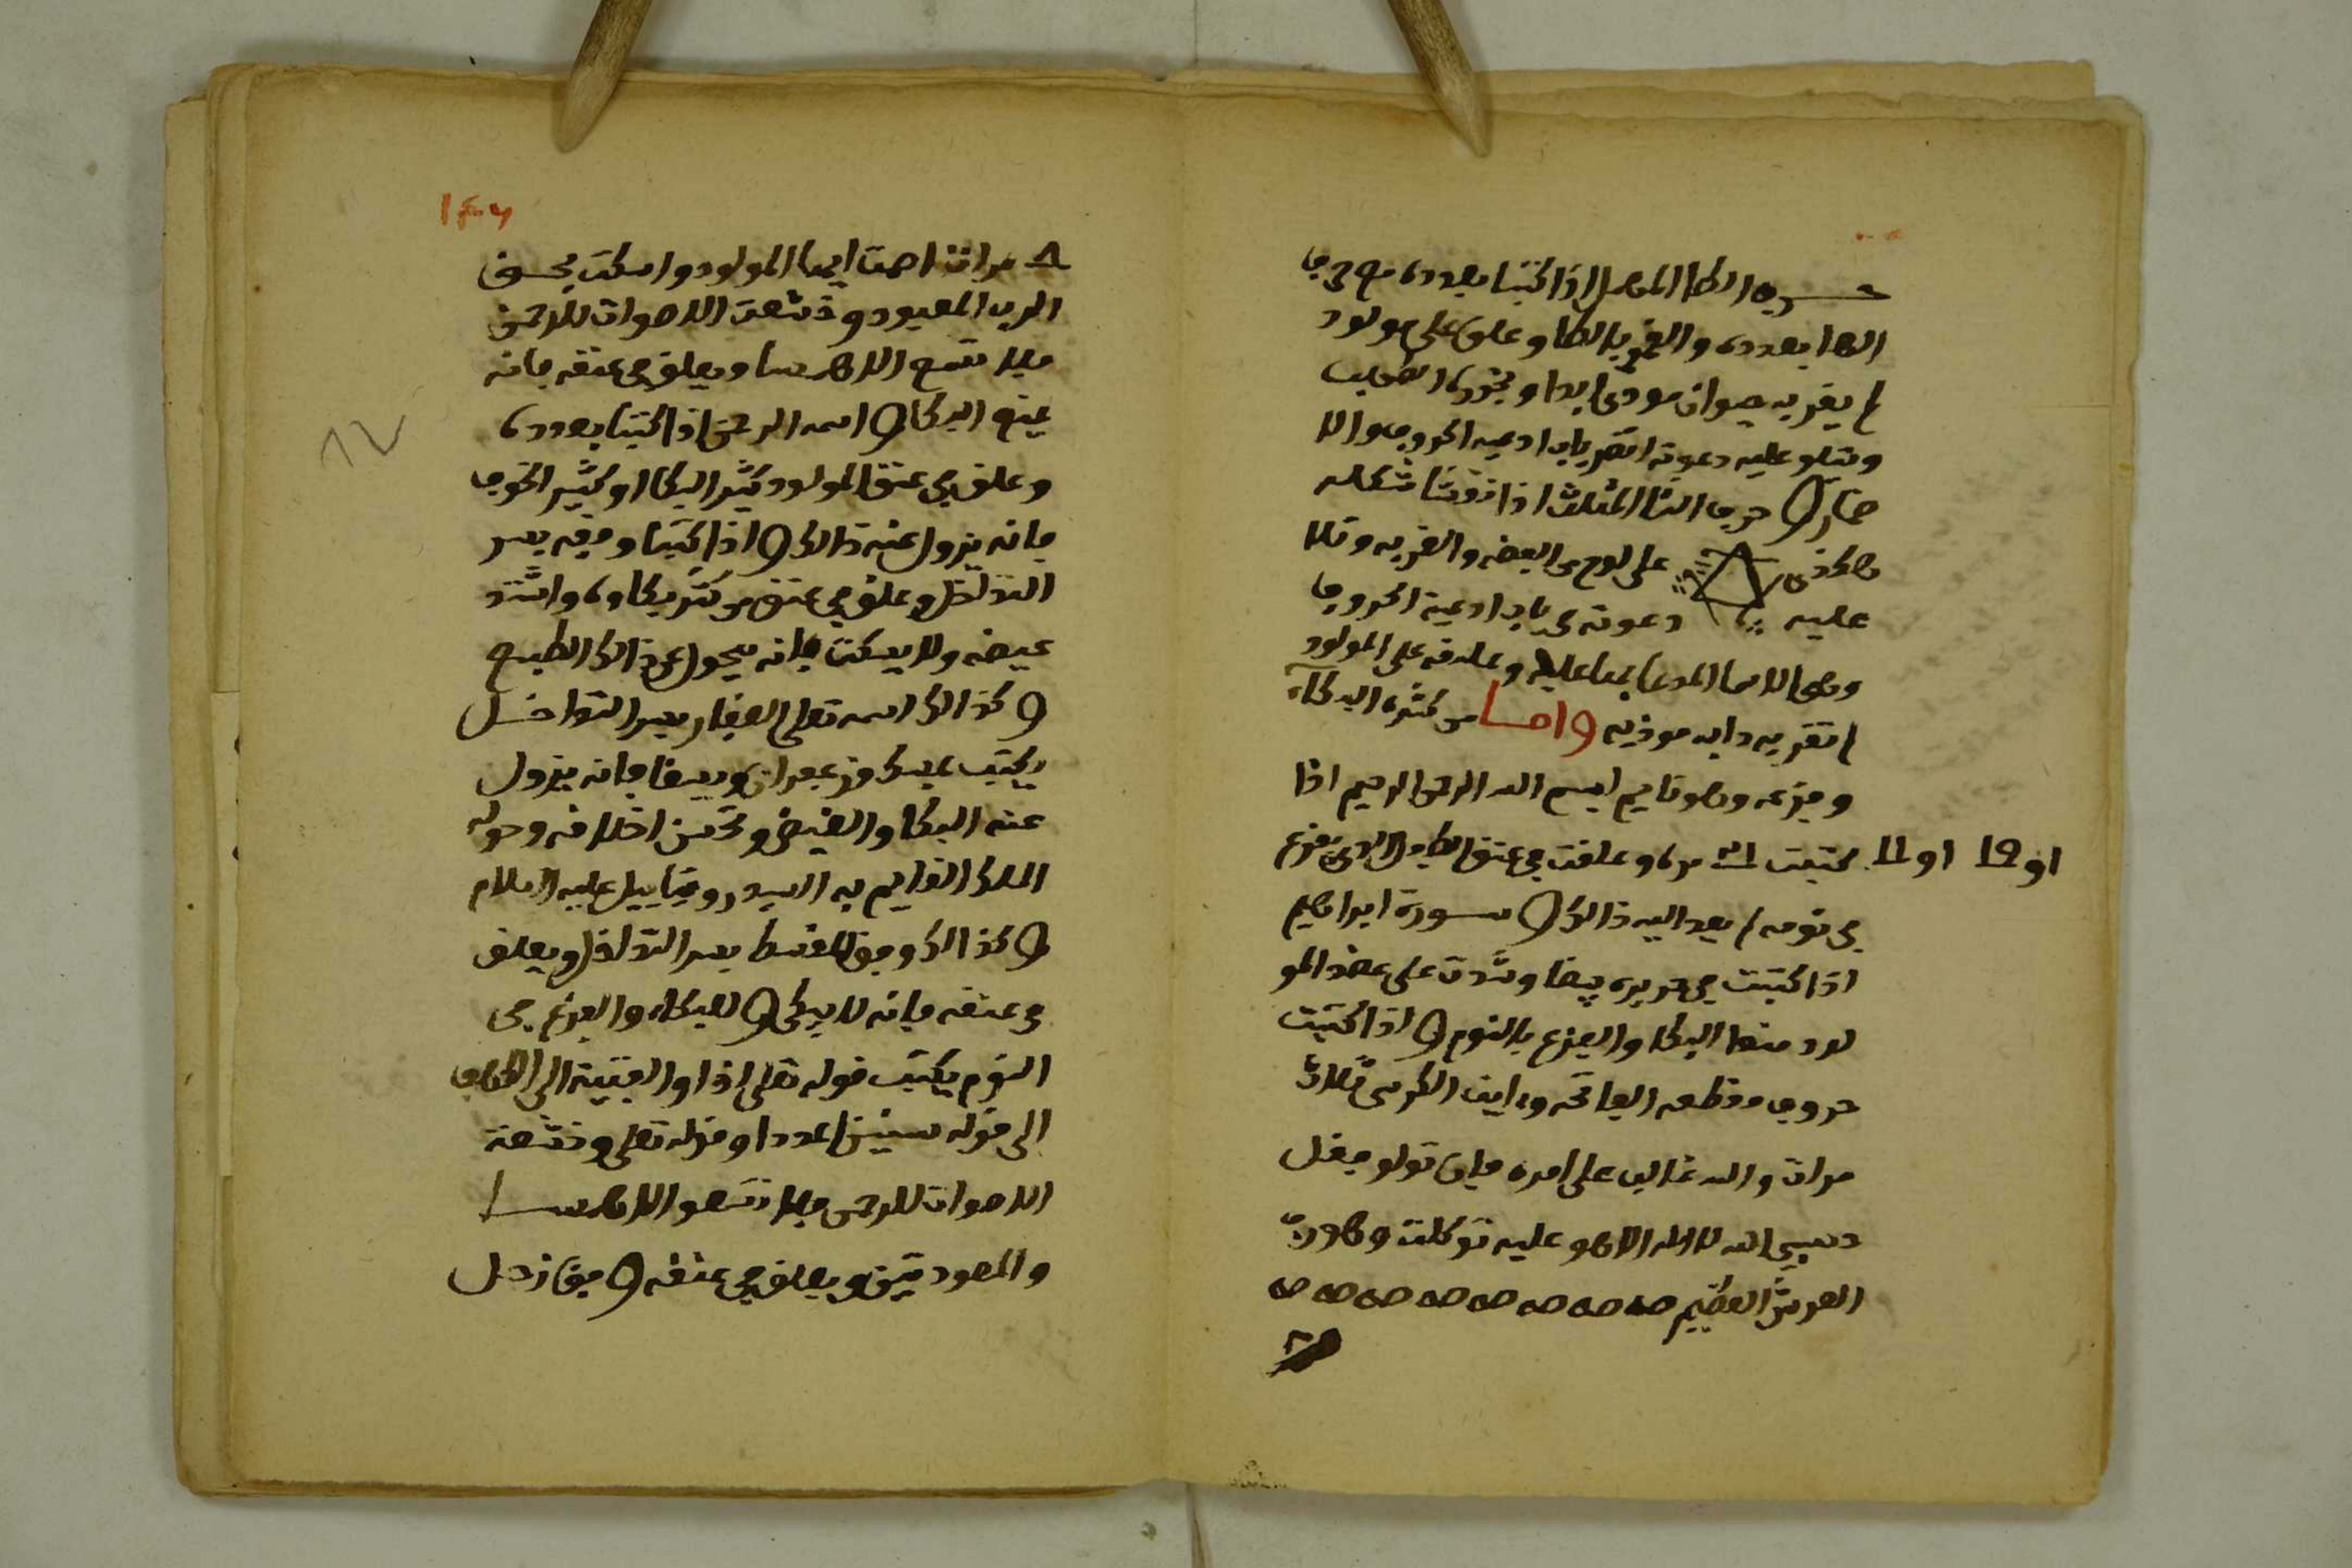 حرف الطا المهمل اذا كتبتا بعدده مع حرف
الها بعدده والقمر بالطا وعلق على مولود
لم يقربه حيوان موذى ابدا وبخوره الطيب
وتتلو عليه دعوته انظر باب ادعية الحروف والا
ضمار و حرف الثا المثلث اذا نقشتا شكله
هكذى على لوح من الفضه والقمر به وتلا
عليه دعوته من باب ادعية الحروف
وهي الاسما المدعا بها عليه وعلقه على المولود
لم تقربه دابه موذيه واما من كثره البكاء
وفزعه وهو نايم بسم الله الرحمن الرحيم اذا
كتبت ٢١ مره وعلقت في عنق الطفل الذى فزع
او ١٩ او ١١
في نومه لم يعد اليه ذالك و سورة ابراهيم
اذا كتبت في حريره بيضا وشدت على عضد المو
لود منعا البكا والفزع بالنوم و اذا كتبت
حروف مقطعه الفاتحه وءاية الكرسي ثلاث
مرات والله غالب على امره فان تولو فقل
حسبي الله لا اله الا هو عليه توكلت وهو رب
العرش العظيم صه صه صه صه صه صه صه صه
١٤٦
٨ مرات اصمت ايها المولود واسكت بحق
الرب المعبود وخشعت الاصوات للرحمن
فلا تسمع الا همسا ويعلق في عنقه فانه
يمنع البكا و اسمه الرحمن اذا كتبتا بعدده
وعلق في عنق المولود كثير البكا او كثير الخوف
فانه يزول عنه ذالك و اذا كتبتا وفقه بسر
التداخل وعلق في عنق من كثر بكاوه واشتد
غيضه ولا يسكت فانه يحول عن ذالك الطبع
و كذالك اسمه تعلى الغفار بسر التداخل
يكتب بمسك وزعفران ويسقا فانه يزول
عنه البكا والغيض وتحسن اخلاقه وحوله
الملك القايم به السيد روقياييل عليه السلام
و كذالك وفق المقسط بسر التداخل ويعلق
في عنقه فانه لا يبكي و للبكاء والفزع في
النوم يكتب قوله تعلى اذ اوا الفتية الى الكهف
الى قوله سنين عددا وقوله تعلى وخشعت
الاصوات للرحمن فلا تسمعو الا همسا
والمعودتين ويعلق في عنقه و وفق زحل
١٧